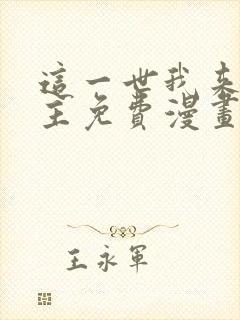 這一世我來
主免費漫畫
王永軍